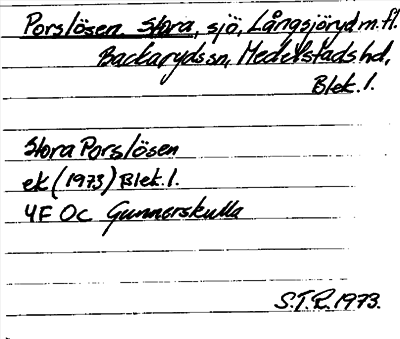 Porslösen, Stora, sjö, Långsjöryd m.fl.
Backaryds sn, Medelstads hd,
Blek. l.
Stora Porslösen
ek (1973) Blek. l.
4F OC Gunnerskulla
S.T.R. 1973.